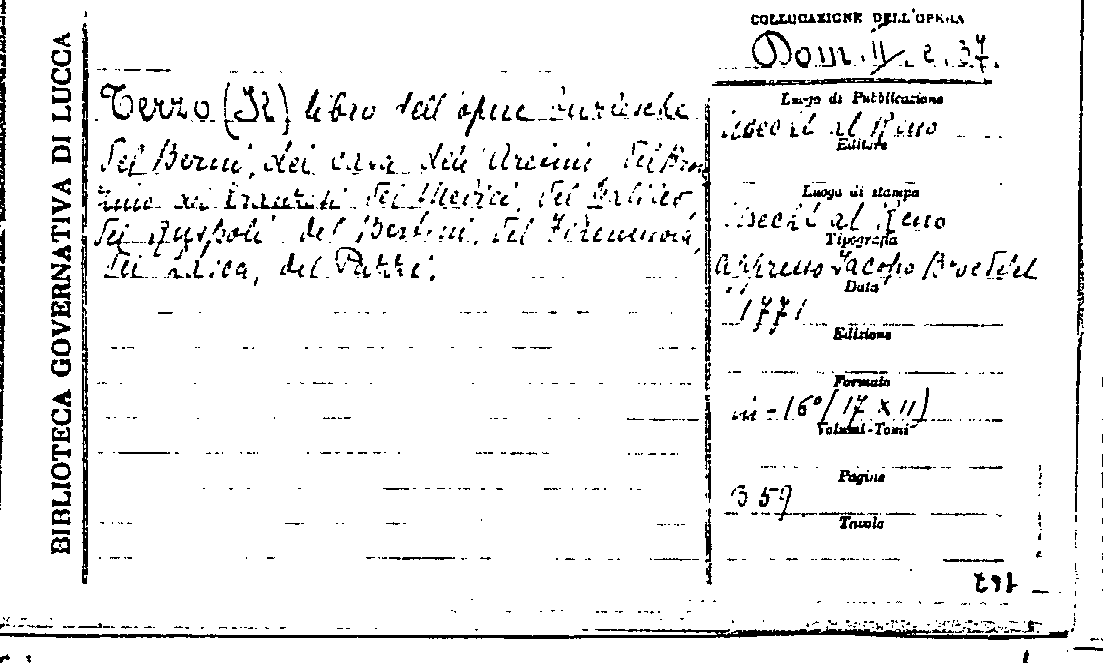 BIBLIOTECA GOVERNATIVA DI LUCCA
COLLOCAZIONE DELL'OPERA
Dom. II. e. 37
Terzo (Il) libro dell'opere burlesche
del Berni, del casa, dell'Aretino, del Bron
zino, del Franzesi, del Medici, del Galileo,
del Ruspoli, del Bertini, del Firenzuola,
del Lasca, del Pazzi.
Luogo di Pubblicazione
Usecht al Reno
Editore
Luogo di stampa
Usecht al Reno
Tipografia
appresso Jacopo Broedelet
Data
1771
Edizione
Formato
in-16° (17 x 11)
Volumi-Tomi
Pagine
359
Tavole